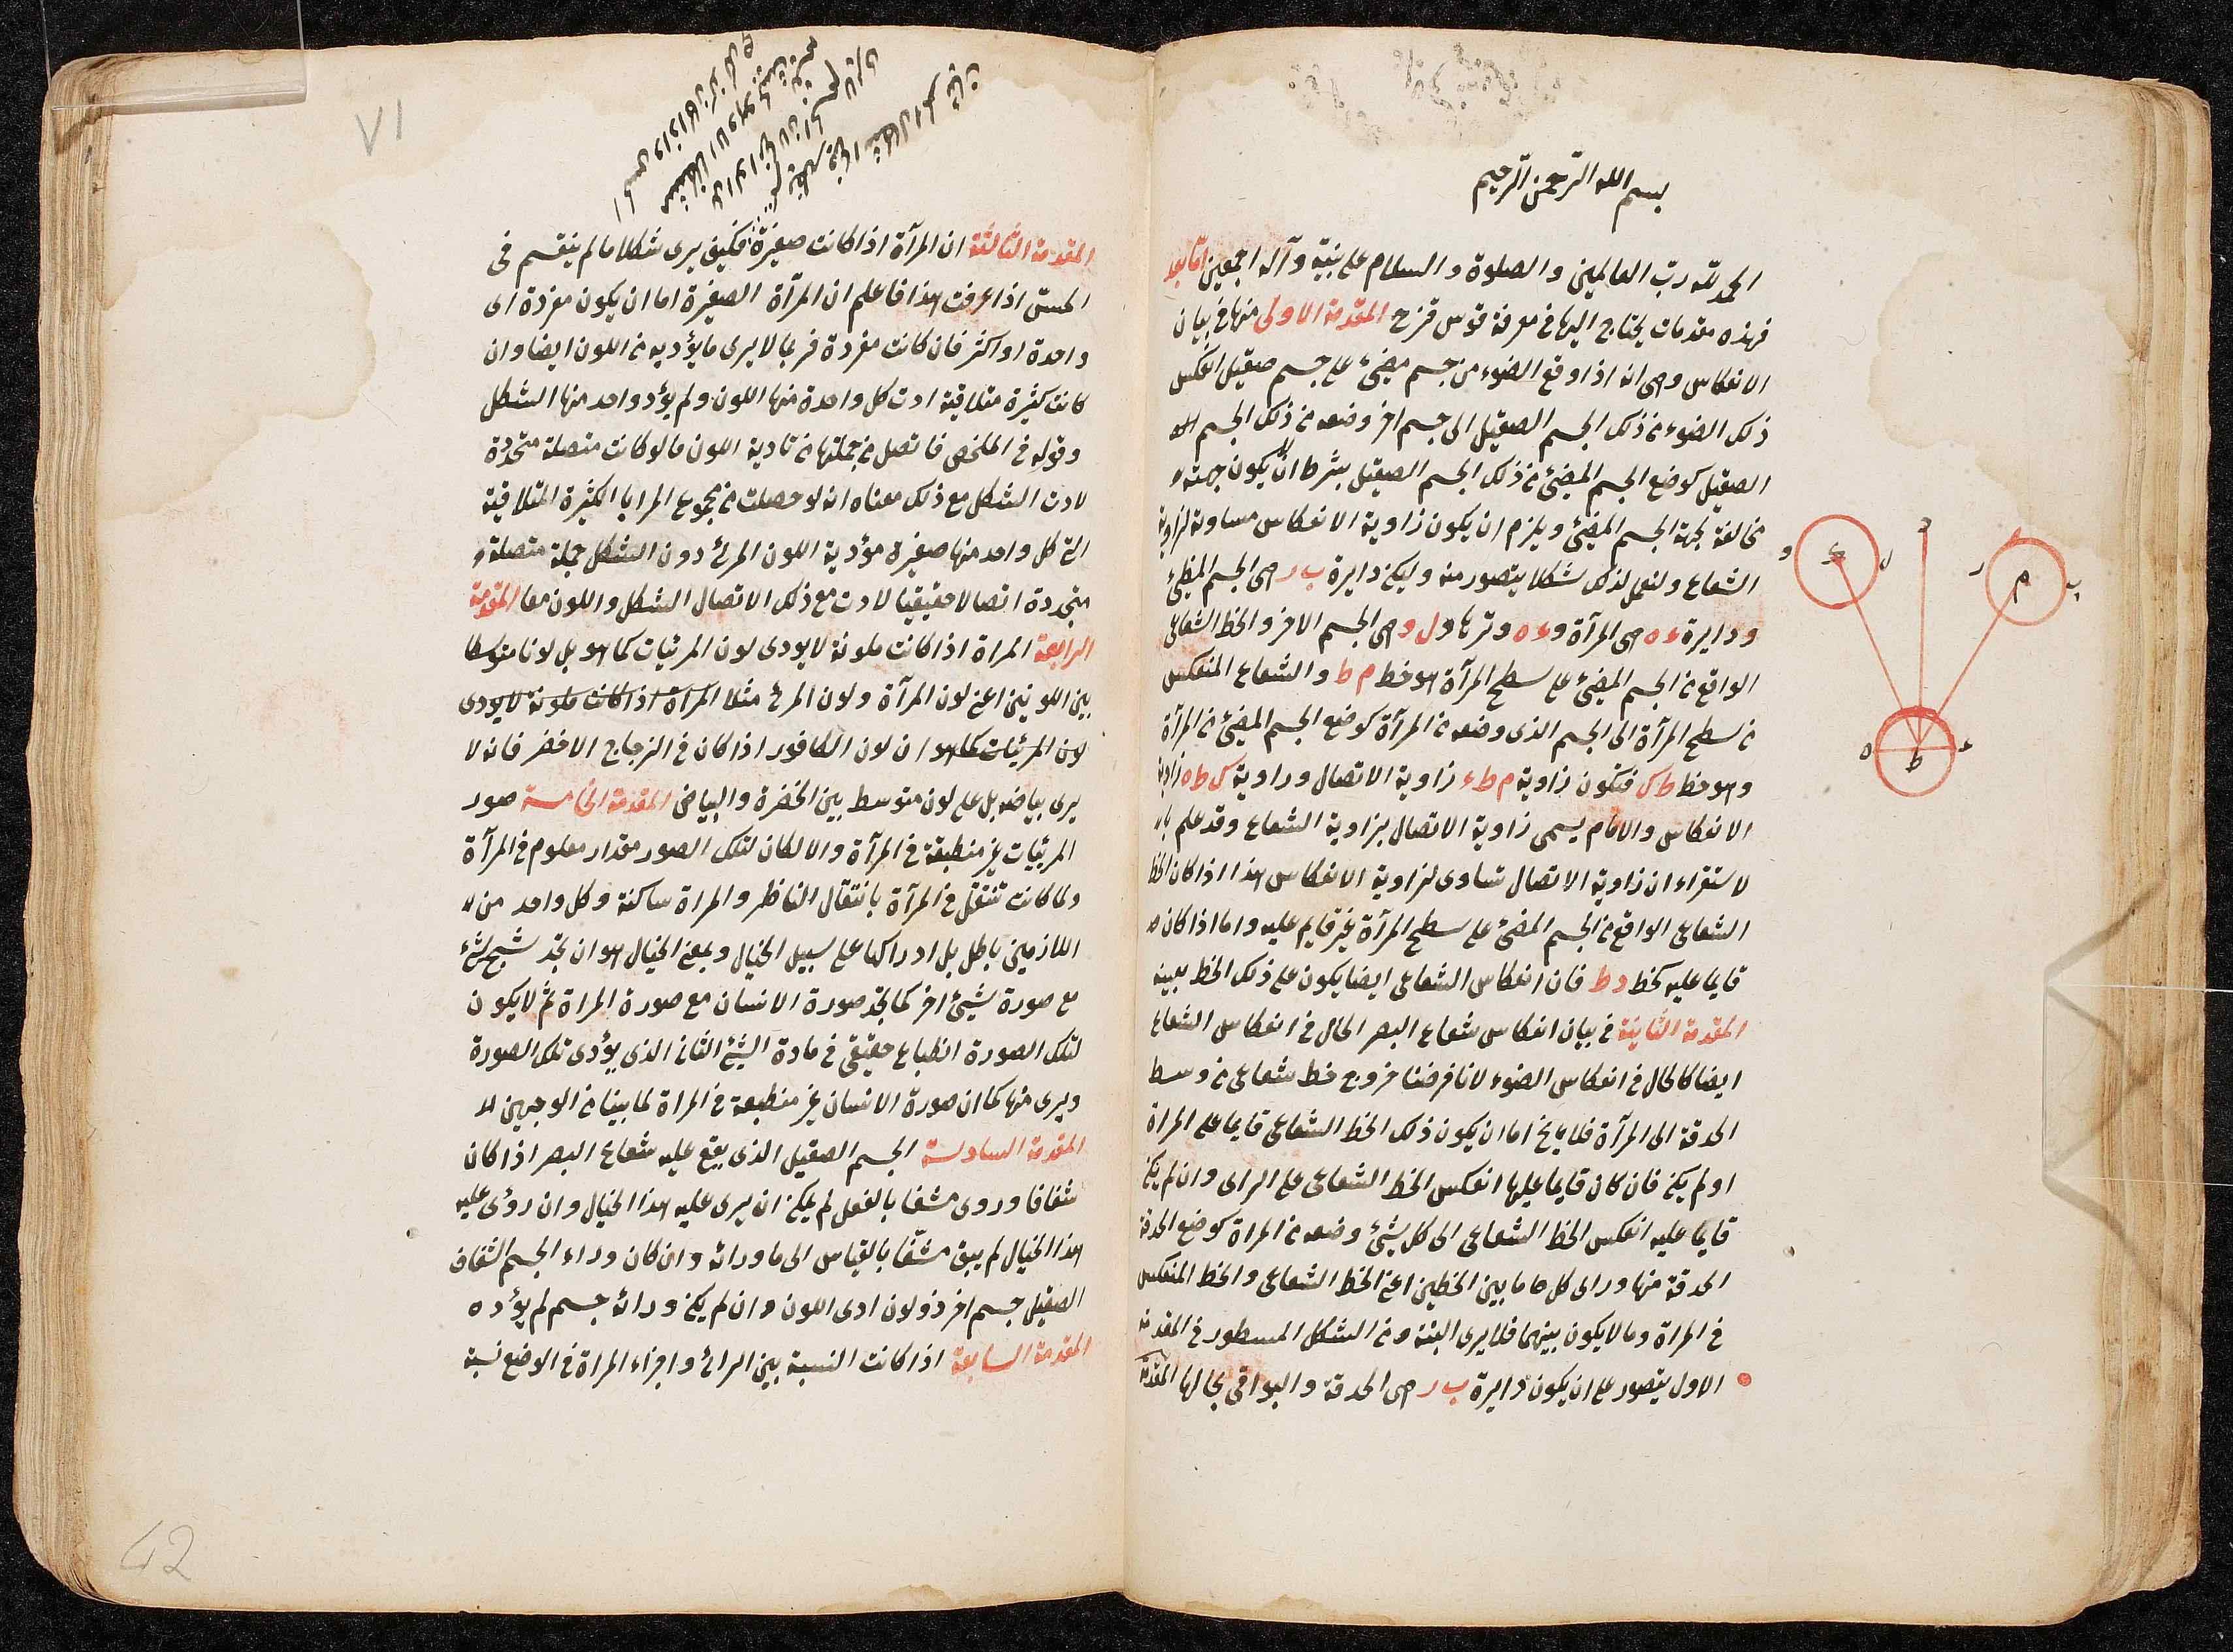 بسم الله الرحمن الرحيم
الحمد لله رب العالمين والصلوة والسلام على نبيه وآله اجمعين اما بعد
فهذه مقدمات يحتاج اليها فى معرفة قوس قزح المقدمة الاولى منها فى بيان
الانعكاس وهى انه اذا وقع الضوء من جسم مضئ على جسم صقيل انعكس
ذلك الضوء من ذلك الجسم الصقيل الى جسم اخر وضعه من ذلك الجسم
الصقيل كوضع الجسم المضئ من ذلك الجسم الصقيل بشرط ان يكون جهته
مخالفة لجهة الجسم المضئ ويلزم ان يكون زاوية الانعكاس مساوية لزاوية
الشعاع ولنعمل لذلك شكلا يتصور منه وليكن دايرة ب ر هى الجسم المضئ
ودايرة ء ه هى المرآة و ء ه وترها و ل و هى الجسم الاخر والخط الشعاعى
الواقع من الجسم المضئ على سطح المرآة هو خط م ط والشعاع المنعكس
من سطح المرآة الى الجسم الذى وضعه من المرآة كوضع الجسم المضئ من المرآة
وهو خط ط ك فتكون زاوية م ط ء زاوية الاتصال وزاوية ك ط ه زاوية
الانعكاس والامام يسمى زاوية الاتصال بزاوية الشعاع وقد علم با
لاستقراء ان زاوية الاتصال تساوى لزاوية الانعكاس هذا اذا كان الخط
الشعاعى الواقع من الجسم المضئ على سطح المرآة غير قايم عليه واما اذا كان
قايما عليه كخط د ط فان انعكاس الشعاعى ايضا يكون على ذلك الخط بعينه
المقدمة الثانية فى بيان انعكاس شعاع البصر الحال فى انعكاس الشعاع
ايضا كالحال فى انعكاس الضوء لانا فرضنا خروج خط شعاعى من وسط
الحدقة الى المرآة فلا يخ اما ان يكون ذلك الخط الشعاعى قايما على المراة
او لم يكن فان كان قايما عليها انعكس الخط الشعاعى على الراى وان لم يكن
قايما عليه انعكس الخط الشعاعى الى كل شيئ وضعه من المراة كوضع الحدقة
الحدقة منها وراى كل ما بين الخطين اعنى الخط الشعاعى والخط المنعكس
فى المراة وما لا يكون بينهما فلا يرى البتة ومن الشكل المسطور فى المقدمة
الاول يتصور على ان يكون دايرة ب ر هى الحدقة والبواقى بحالها المقدمة
و
ك
ل
د
ر
م
ب
ه
ط
ء
٧١
المقدمة الثالثة ان المرآة اذا كانت صغيرة فكيف يرى شكلا ما لم ينقسم فى
الحس اذا عرفت هذا فاعلم ان المرآة الصغيرة اما ان يكون مفردة اى
واحدة او اكثر فان كانت مفردة فربما لا يرى ما يؤديه من اللون ايضا وان
كانت كثيرة متلاقية ادت كل واحدة منها اللون ولم يؤد واحد منها الشكل
وقوله فى الملخص فاتصل من جملتها من تادية اللون ما لو كانت متصلة متحدة
لادت الشكل مع ذلك معناه انه لو حصلت من مجموع المرايا الكثيرة المتلاقية
التى كل واحد منها صغيرة مؤدية اللون المرئ دون الشكل جملة متصلة
متحددة اتصالا حقيقيا لادت مع ذلك الاتصال الشكل واللون معا المقدمة
الرابعة المراة اذا كانت ملونة لا يودى لون المرئيات كما هو بل لونا متوسطا
بين اللونين اعنى لون المرآة ولون المرئ مثلا المرآة اذا كانت ملونة لا يودى
لون المرئيات كما هو ان لون الكافور اذا كان فى الزجاج الاخضر فانه لا
يرى بياضه بل على لون متوسط بين الخضرة والبياض المقدمة الخامسة صور
المرئيات غير منطبقة فى المرآة والا لكان لتلك الصور مقدار معلوم فى المرآة
ولما كانت تنتقل فى المرآة بانتقال الناظر والمراة ساكنة وكل واحد من
اللازمين باطل بل ادراكها على سبيل الخيال وبمعنى الخيال هو ان تجد شبح شئ
مع صورة شيئ اخر كما تجد صورة الانسان مع صورة المراة ثم لا يكون
لتلك الصورة انطباع حقيقى فى مادة الشئ الثانى الذى يؤدى تلك الصورة
ويرى منها كما ان صورة الانسان غير منطبعة فى المراة لما بينا من الوجهين
المقدمة السادسة الجسم الصقيل الذى يقع عليه شعاع البصر اذا كان
شفافا وروى مشفا بالفعل لم يمكن ان يرى عليه هذا الخيال وان رؤى عليه
هذا الخيال لم يبق مشفا بالقياس الى ما ورائه وان كان وراء الجسم الشفاف
الصقيل جسم اخر ذو لون ادى اللون وان لم يكن ورائه جسم لم يؤده
المقدمة السابعة اذا كانت النسبة بين الرائ واجزاء المراة فى الوضع نسبة
42